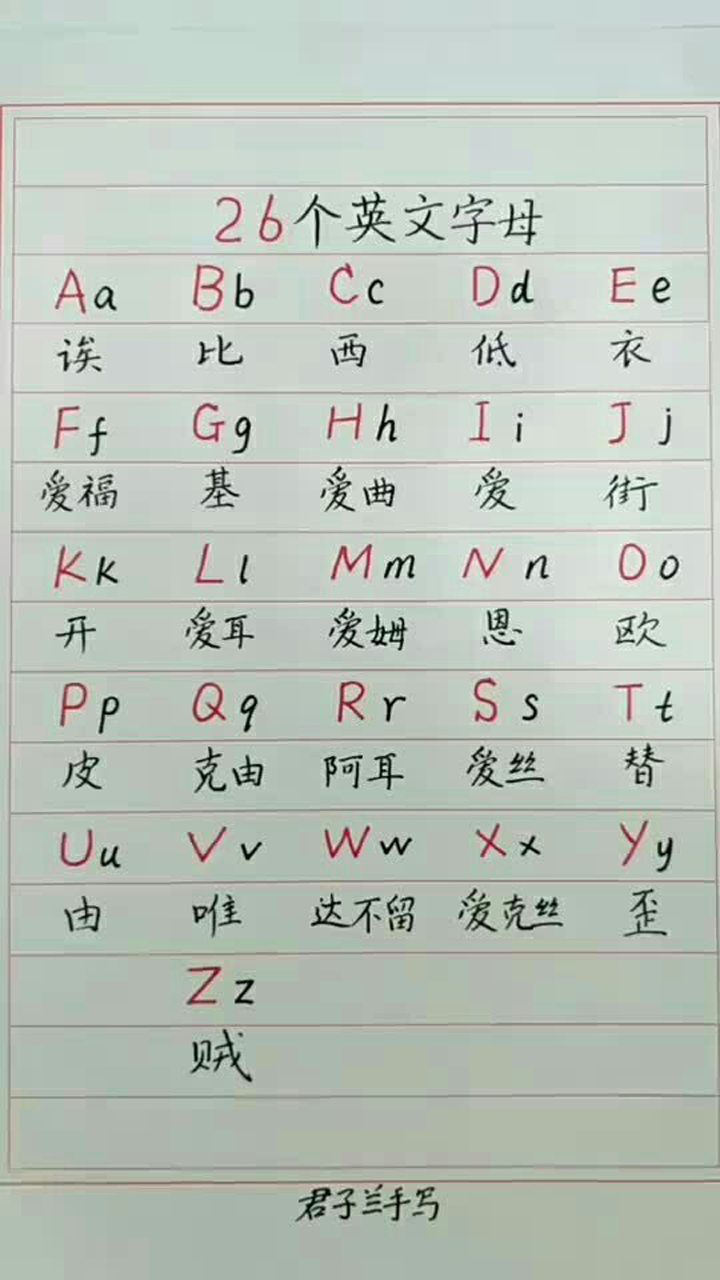 26个英文字母
Aa Bb Cc Dd Ee
诶 比 西 低 衣
Ff Gg Hh Ii Jj
爱福 基 爱曲 爱 街
Kk Ll Mm Nn Oo
开 爱耳 爱姆 恩 欧
Pp Qq Rr Ss Tt
皮 克由 阿耳 爱丝 替
Uu Vv Ww Xx Yy
由 唯 达不留 爱克丝 歪
Zz
贼
君子兰手写